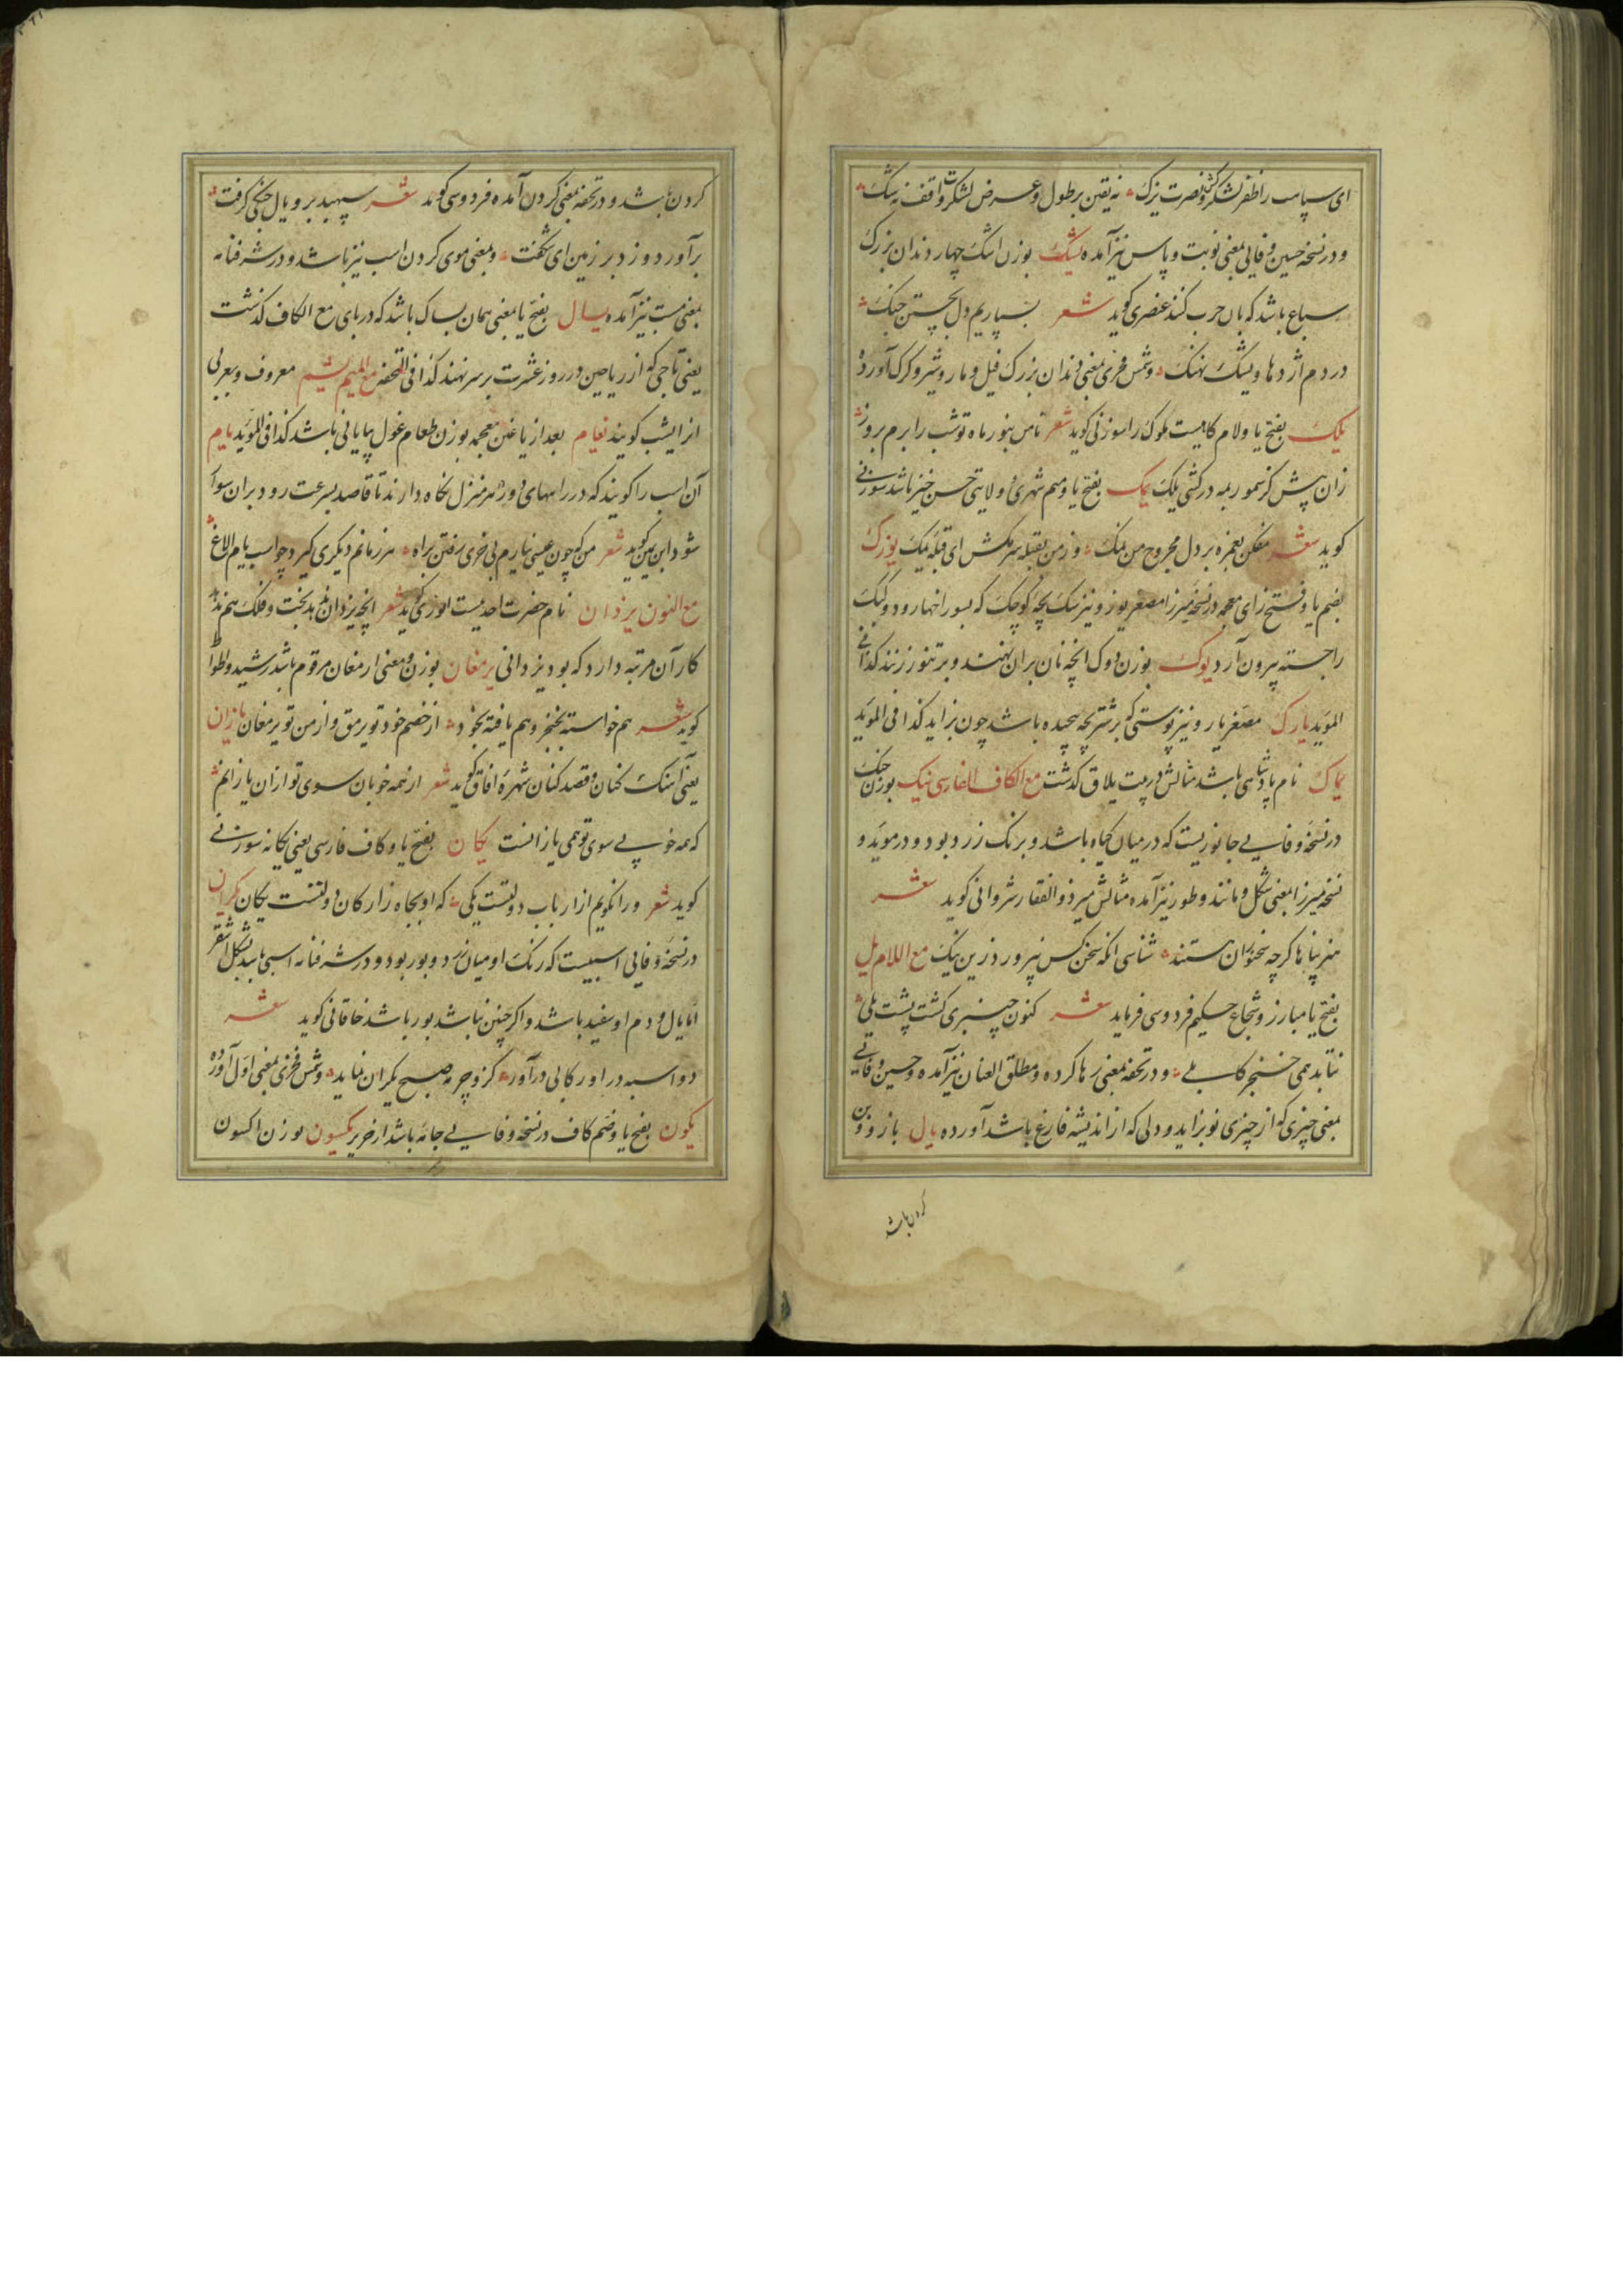 ای سپاست را ظفر لشکرکش و نصرت یزک نه یقین بر طول و عرض لشکرت واقف نه شک
و در نسخه حسین وفایی بمعنی نوبت و پاس نیز آمده یشک بوزن اشک چهار دندان بزرک
سباع باشد که بان حرب کنند عنصری کوید شعر بسپاریم دل بجستن جنک
در دم اژدها و یشک نهنک و شمس فخری بمعنی دندان بزرک فیل و مار و شیر و کرک آورده
یلک بفتح یا و لام کلاهیست ملوک را سوزنی کوید شعر تا من بنور ماه تو شب را برم بروز
زان پیش کز سمور بمه در کشی یلک یمک بفتح یا و میم شهری و ولایتی حسن خیز باشد سوزنی
کوید شعر مفکن بغمزه بر دل مجروح من نمک وز من بقبله سر مکش ای قبله یمک یوزک
بضم یا و فتح زای معجمه در نسخه میرزا مصغر یوز و نیز سک بچه کوچک که بسوراخها رود و کبک
را جسته بیرون آرد یوک بوزن دوک انچه نان بران نهند و بر تنور زنند کذا فی
الموید یارک مصغر یار و نیز پوستی که بر شتر بچه پیچیده باشد چون بزاید کذا فی الموید
یماک نام پادشاهی باشد مثالش در بیت یلاق کذشت مع الکاف الفارسی ینک بوزن جنک
در نسخه وفایی جانوریست که در میان کیاه باشد و برنک زرد بود و در موید و
نسخه میرزا بمعنی شکل و مانند و طور نیز آمده مثالش میر ذوالفقار شروانی کوید شعر
هنر پناها کرچه سخنوران هستند شناسی انکه سخن کس نپرورد زین ینک مع اللام یل
بفتح یا مبارز و شجاع حکیم فردوسی فرماید شعر کنون چنبری کشت پشت یلی
نتابد همی خنجر کابلی و در تحفه بمعنی رها کرده و مطلق العنان نیز آمده و حسین وفایی
بمعنی چیزی که از چیزی نو بزاید و دلی که از اندیشه فارغ باشد آورده یال بازو و بن
کردن باشد
کردن باشد و در تحفه بمعنی کردن آمده فردوسی کوید شعر سپهبد بر و یال جنکی کرفت
برآورد و زد بر زمین ای شکفت و بمعنی موی کردن اسب نیز باشد و در شرفنامه
بمعنی مست نیز آمده یسال بفتح یا بمعنی همان بساک باشد که در بای مع الکاف کذشت
یعنی تاجی که از ریاحین در روز عشرت بر سر نهند کذا فی التحفه مع المیم یشم معروف و بعربی
انرا یشب کویند یغام بعد از یا غین معجمه بوزن طعام غول بیابانی باشد کذا فی الموید یام
آن اسب را کویند که در راههای دور هر منزل نکاه دارند تا قاصد بسرعت رود بران سوار
شود ابن یمین کوید شعر من که چون عیسی نیارم بی خری رفتن براه هر زمانم دیکری کیرد چو اسب یام الاغ
مع النون یزدان نام حضرت احدیت است انوری کوید شعر انچه یزدان ندهد بخت و فلک هم ندهد
کار آن مرتبه دارد که بود یزدانی یرمغان بوزن و معنی ارمغان مرقوم باشد رشید وطواط
کوید شعر هم خواسته بخنجر و هم یافته بجود از خصم خود تو یرمق و از من تو یرمغان یازان
یعنی آهنک کنان و قصد کنان شهره افاق کوید شعر از همه خوبان سوی تو ازان یازانم
که همه خوبی سوی تو همی یازانست یکان بفتح یا و کاف فارسی یعنی یکانه سوزنی
کوید شعر ورا نکویم از ارباب دولتست یکی که او بجاه ز ارکان دولتست یکان یکران
در نسخه وفایی اسبیست که رنک او میان زرد و بور بود و در شرفنامه اسبی باشد بشکل اشقر
اما یال و دم او سفید باشد و اکر چنین نباشد بور باشد خاقانی کوید شعر
دو اسبه درا و رکابی درآور کزو چرمه صبح یکران نماید و شمس فخری بمعنی اول آورده
یکون بفتح یا و ضم کاف در نسخه وفایی جامه باشد از حریر یکسون بوزن اکسون